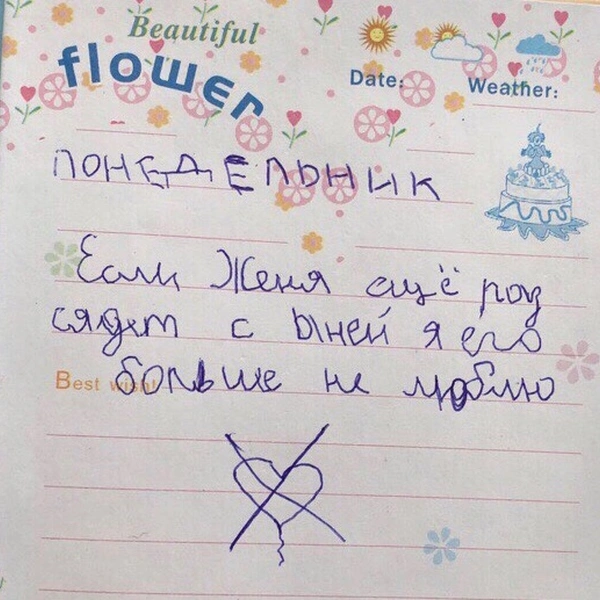 Beautiful
flower
Date: Weather:
ПОНЕДЕЛЬНИК
Если Женя ещё роз
сядет с Ыней я его
Best wish!
больше не люблю